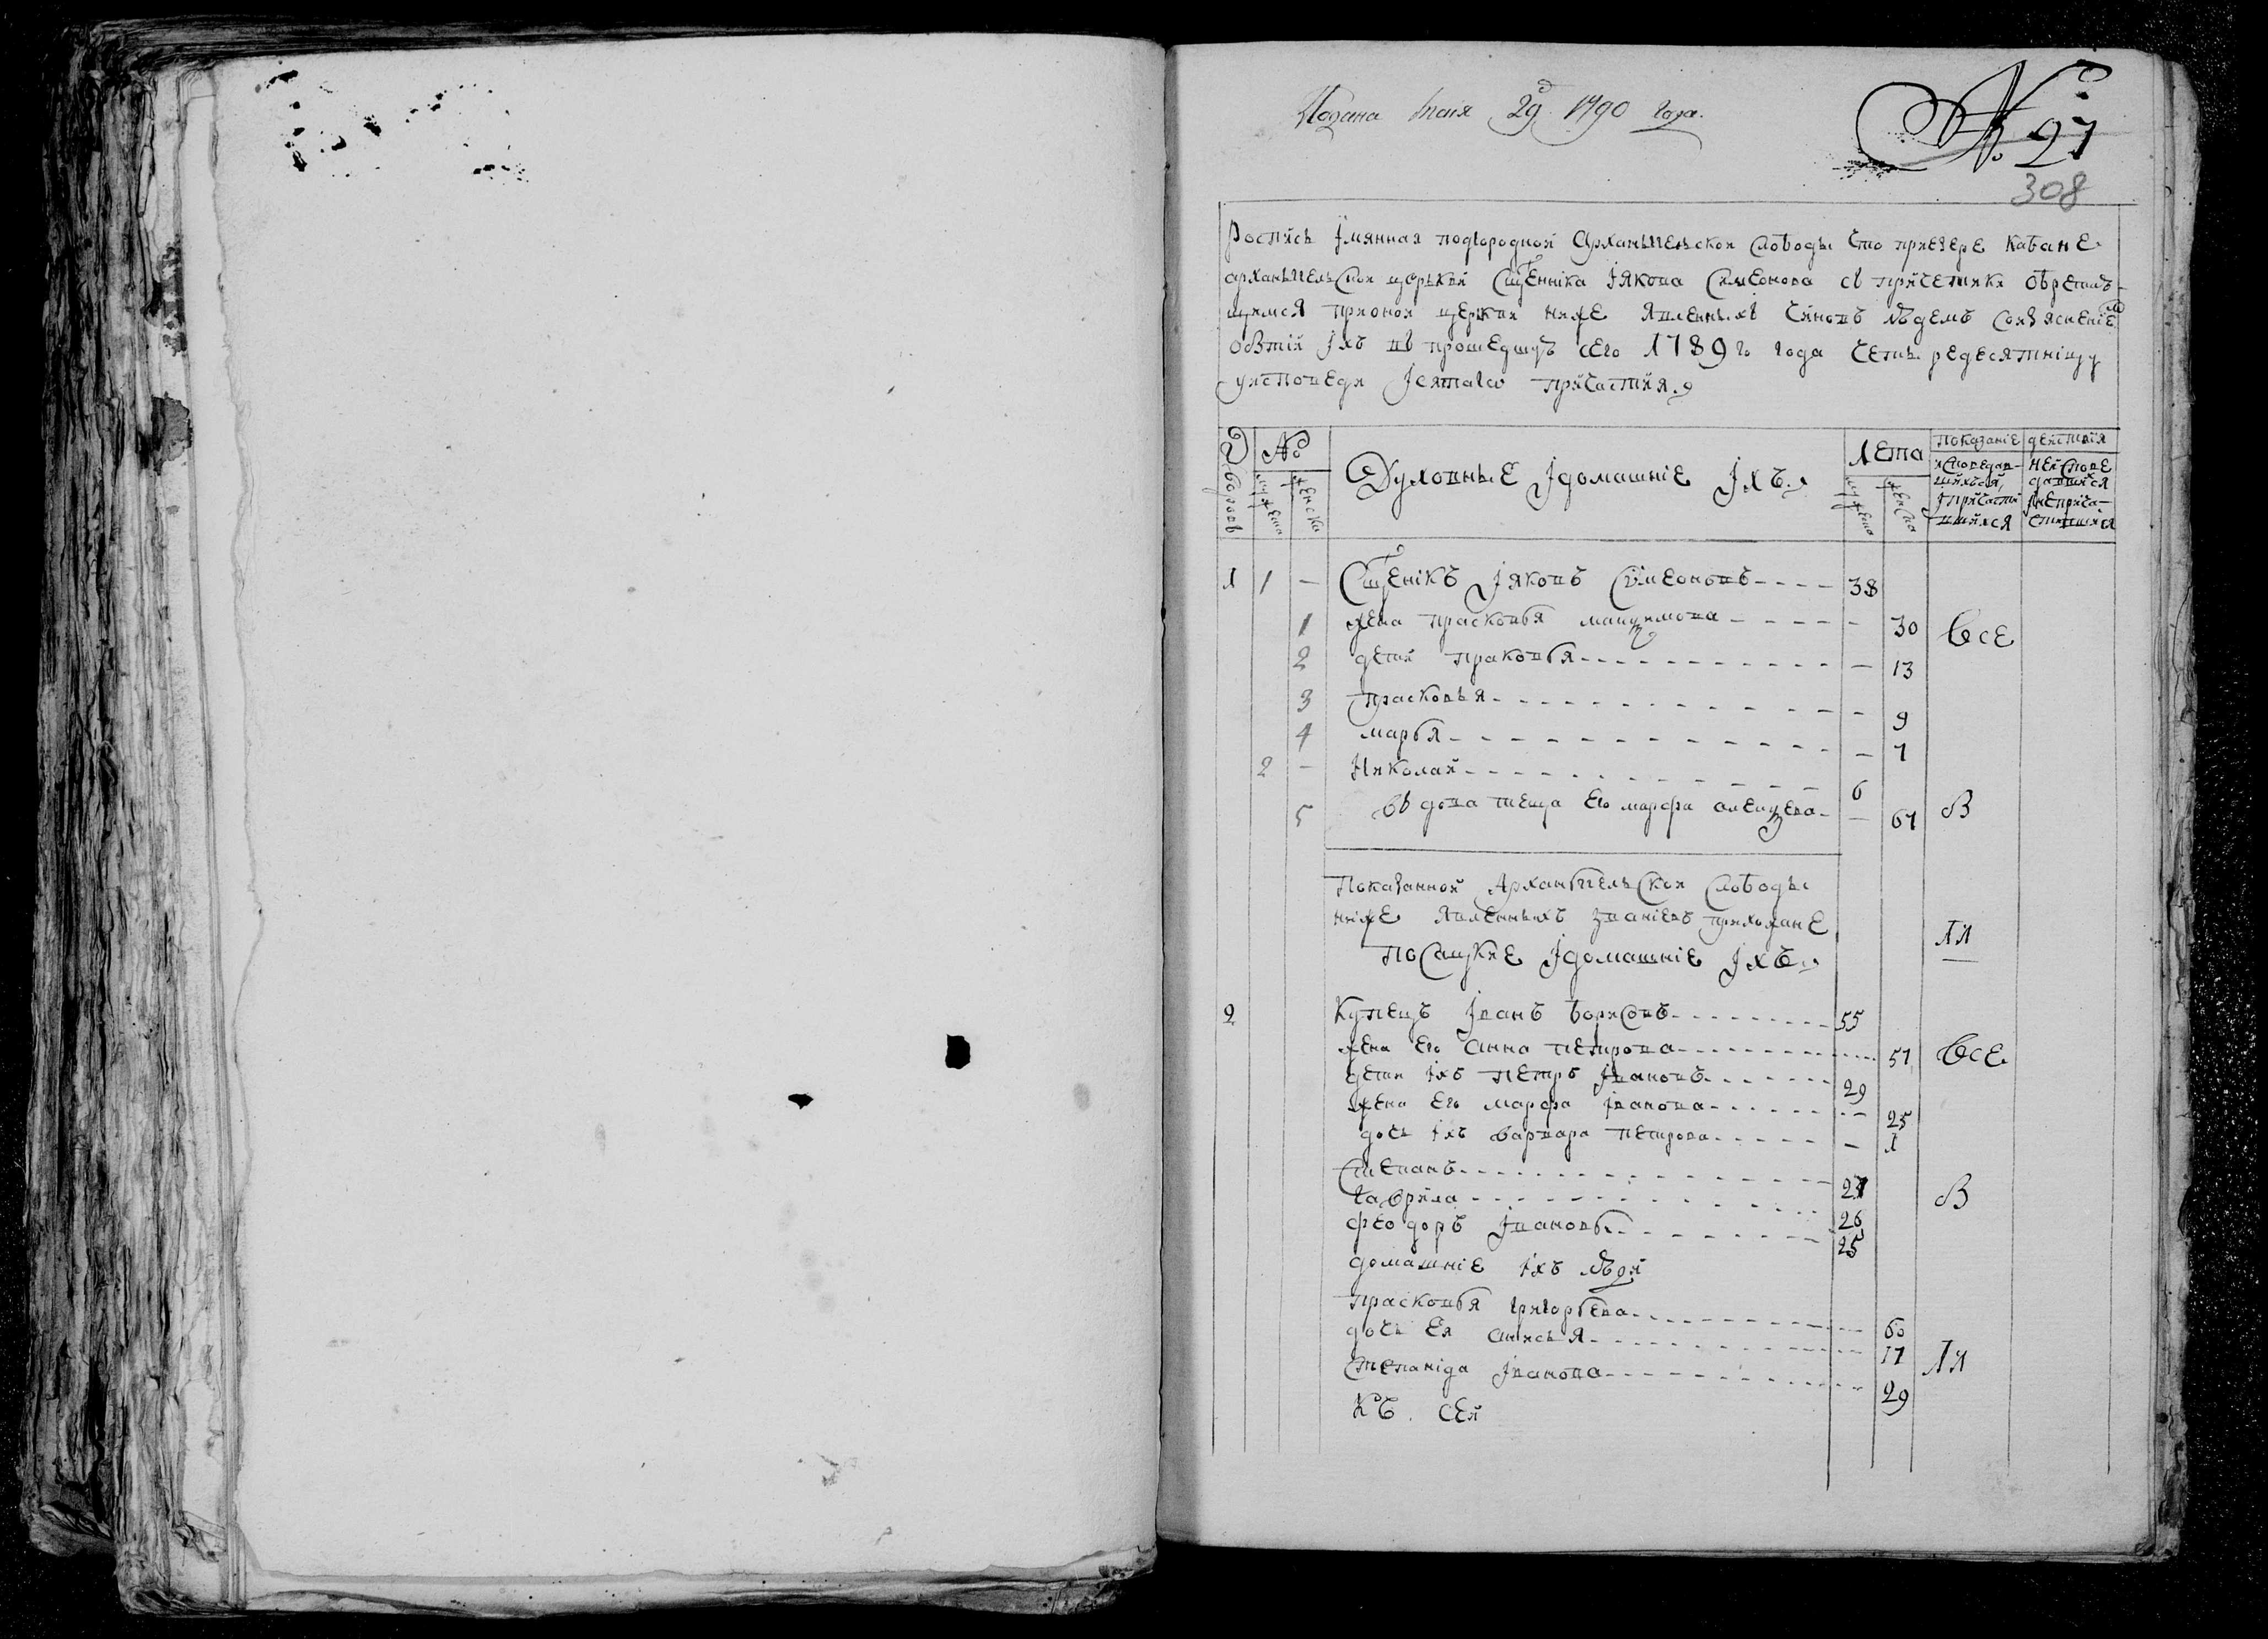 Подана маия 29 1790 года.
№ 27
308
Роспись Iмянная подгородной Арханьгельской слободы что приезере кабане
арханьгельской церькви Сщенника Iякова Симеонова съ причетники обретаю-
щимся прионой церкви ниже явленныхъ чиновъ людемъ соизяснениемъ
обытiи Iхъ въ прошедшую сего 1789 го года четыредесятницу
уисповеди Iсятаго причастия
дворовъ
№
мужеска
женска
Духовные Iдомашнiе Iхъ
Лета
мужеска
женска
показанiе действия
исповедав-
шихъся
Iпричасти
вшихся
неиспове
давшихся
Iнеприча-
стившихся
1 1 — Сщеникъ Iяковъ Симеоновъ 38
1 жена прасковья мак — 30 все
2 дети праковья — 13
3 прасковья — 9
4 марья — 7
2 — Николай 6
5 въдова теща его марфа — 67 в
Показанной Арханьгельской слободы
ниже явленныхъ званiевъ прихожане
посацкие Iдомашнiе Iхъ
ля
2 Купецъ Iванъ борисовъ 55
жена его анна петрова 51 все
дети iхъ петръ Iвановъ 29
жена его марфа Iванова 25
дочь iхъ варвара петрова — 1
Степанъ 27
гаврила 26 в
феодоръ Iвановы 25
домашнiе iхъ люди
прасковья григорьева 60
дочь ея анисья 17
Степанида Iванова 29 ля
къ сей